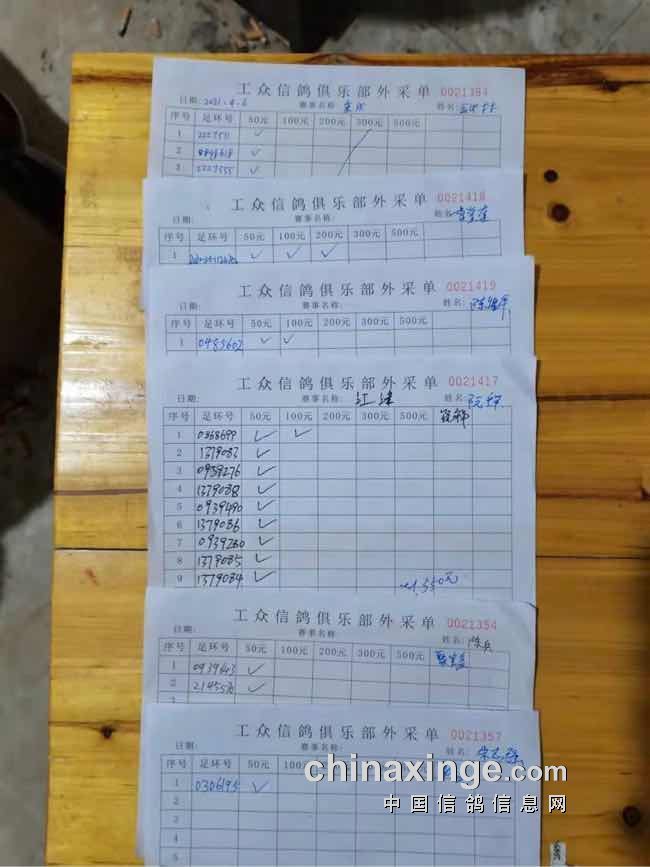 工众信鸽俱乐部外采单 0021394
日期: 2021.4.6 赛事名称: 姓名:
序号 足环号 50元 100元 200元 300元 500元
1 2227511 ✓
2 ✓
3 2227555 ✓
工众信鸽俱乐部外采单 0021418
日期: 赛事名称: 姓名:
序号 足环号 50元 100元 200元 300元 500元
1 ✓ ✓ ✓
工众信鸽俱乐部外采单 0021419
日期: 赛事名称: 姓名:
序号 足环号 50元 100元 200元 300元 500元
1 0485602 ✓ ✓
工众信鸽俱乐部外采单 0021417
日期: 赛事名称: 江津 姓名:
序号 足环号 50元 100元 200元 300元 500元
1 0368699 ✓ ✓
2 1379083 ✓
3 0939276 ✓
4 1379088 ✓
5 0939490 ✓
6 1379086 ✓
7 0939260 ✓
8 1379085 ✓
9 1379084 ✓
550元
工众信鸽俱乐部外采单 0021354
日期: 赛事名称: 姓名:
序号 足环号 50元 100元 200元 300元 500元
1 0939643 ✓
2 ✓
工众信鸽俱乐部外采单 0021357
日期: 赛事名称: 姓名:
序号 足环号 50元 100元
1 0306195 ✓
2
3
4
5
chinaxinge.com
中国信鸽信息网